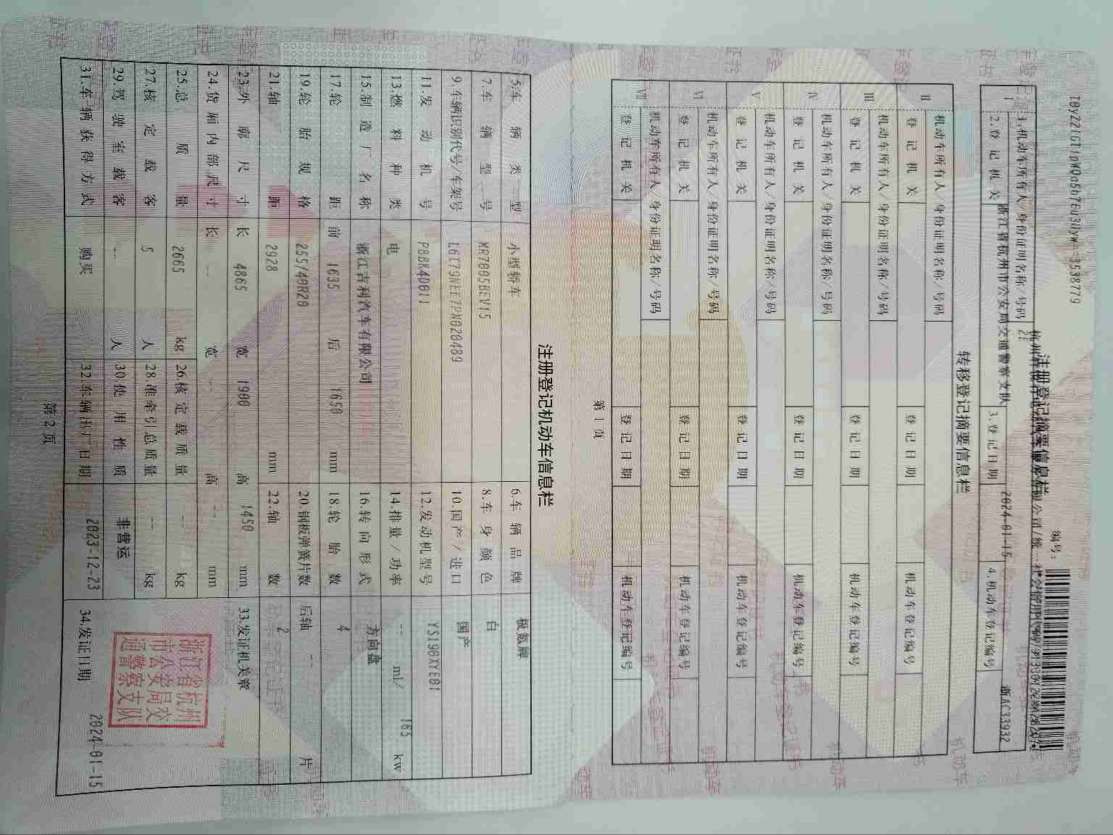 编号:
注册登记摘要信息栏
I
1.机动车所有人/身份证明名称/号码
2.登记机关 浙江省杭州市公安局交通警察支队 3.登记日期 2024-01-15 4.机动车登记编号 浙AC33932
转移登记摘要信息栏
II 机动车所有人/身份证明名称/号码
登记机关 登记日期 机动车登记编号
III 机动车所有人/身份证明名称/号码
登记机关 登记日期 机动车登记编号
IV 机动车所有人/身份证明名称/号码
登记机关 登记日期 机动车登记编号
V 机动车所有人/身份证明名称/号码
登记机关 登记日期 机动车登记编号
VI 机动车所有人/身份证明名称/号码
登记机关 登记日期 机动车登记编号
VII 机动车所有人/身份证明名称/号码
登记机关 登记日期 机动车登记编号
第1页
注册登记机动车信息栏
5.车辆类型 小型轿车 6.车辆品牌 极氪牌
7.车辆型号 MR7005BEV15 8.车身颜色 白
9.车辆识别代号/车架号 L6T79NEE7PN020489 10.国产/进口 国产
11.发动机号 P8BK40611 12.发动机型号 YS198XYE01
13.燃料种类 电 14.排量/功率 -- ml/ 185 kw
15.制造厂名称 浙江吉利汽车有限公司 16.转向形式 方向盘
17.轮距 前 1635 后 1650 mm 18.轮胎数 4
19.轮胎规格 255/40R20 20.钢板弹簧片数 后轴 -- 片
21.轴距 2928 mm 22.轴数 2
23.外廓尺寸 长 4865 宽 1900 高 1450 mm 33.发证机关章
24.货厢内部尺寸 长 -- 宽 -- 高 -- mm
浙江省杭州市公安局交通警察支队
25.总质量 2665 kg 26.核定载质量 -- kg
27.核定载客 5 人 28.准牵引总质量 -- kg
29.驾驶室载客 -- 人 30.使用性质 非营运
31.车辆获得方式 购买 32.车辆出厂日期 2023-12-23 34.发证日期 2024-01-15
第2页